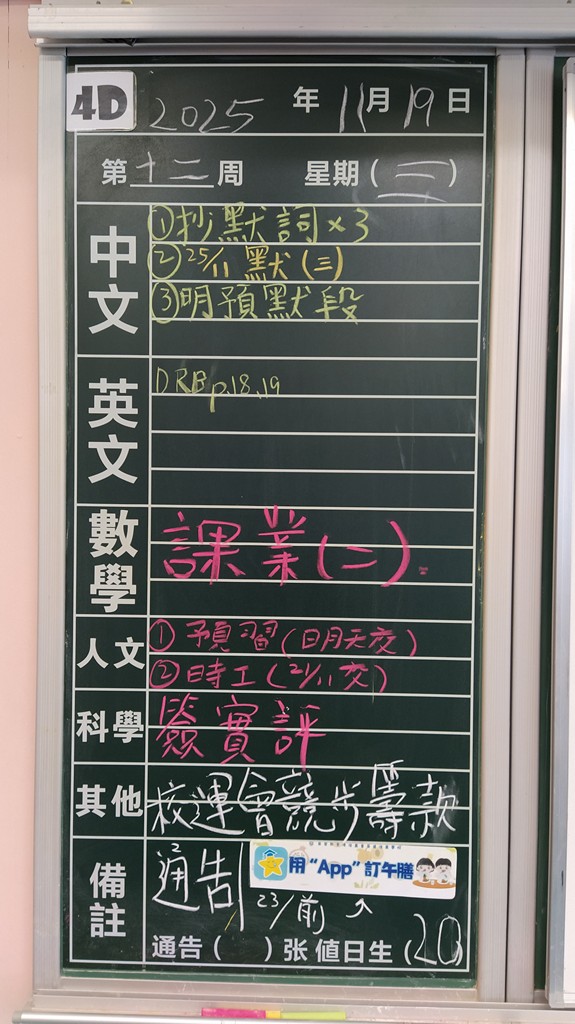 4D 2025 年 11 月 19 日
第 十二 周 星期 (三)
中文
①抄默詞×3
②25/11 默(三)
③明預默段
英文
DRB p.18,19
數學
課業(二)
人文
①預習(明天交)
②時工(21/11交)
科學
簽實評
其他
校運會競步籌款
備註
通告
用“App”訂午膳
23/前
通告 ( ) 张 值日生 (20)